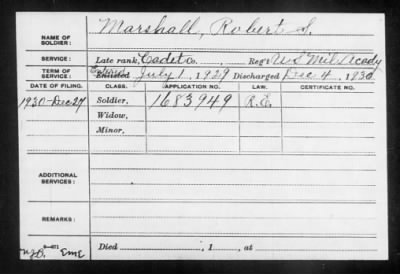 Marshall, Robert S.
NAME OF SOLDIER:
SERVICE: Late rank, Cadet Co. , Reg't U S Mil Acady
TERM OF SERVICE: Enlisted July 1, 1929 Discharged Dec 4, 1930
DATE OF FILING. CLASS. APPLICATION NO. LAW. CERTIFICATE NO.
1930-Dec 27 Soldier, 1683949 R.E.
Widow,
Minor,
ADDITIONAL SERVICES:
REMARKS:
Died , 1 , at